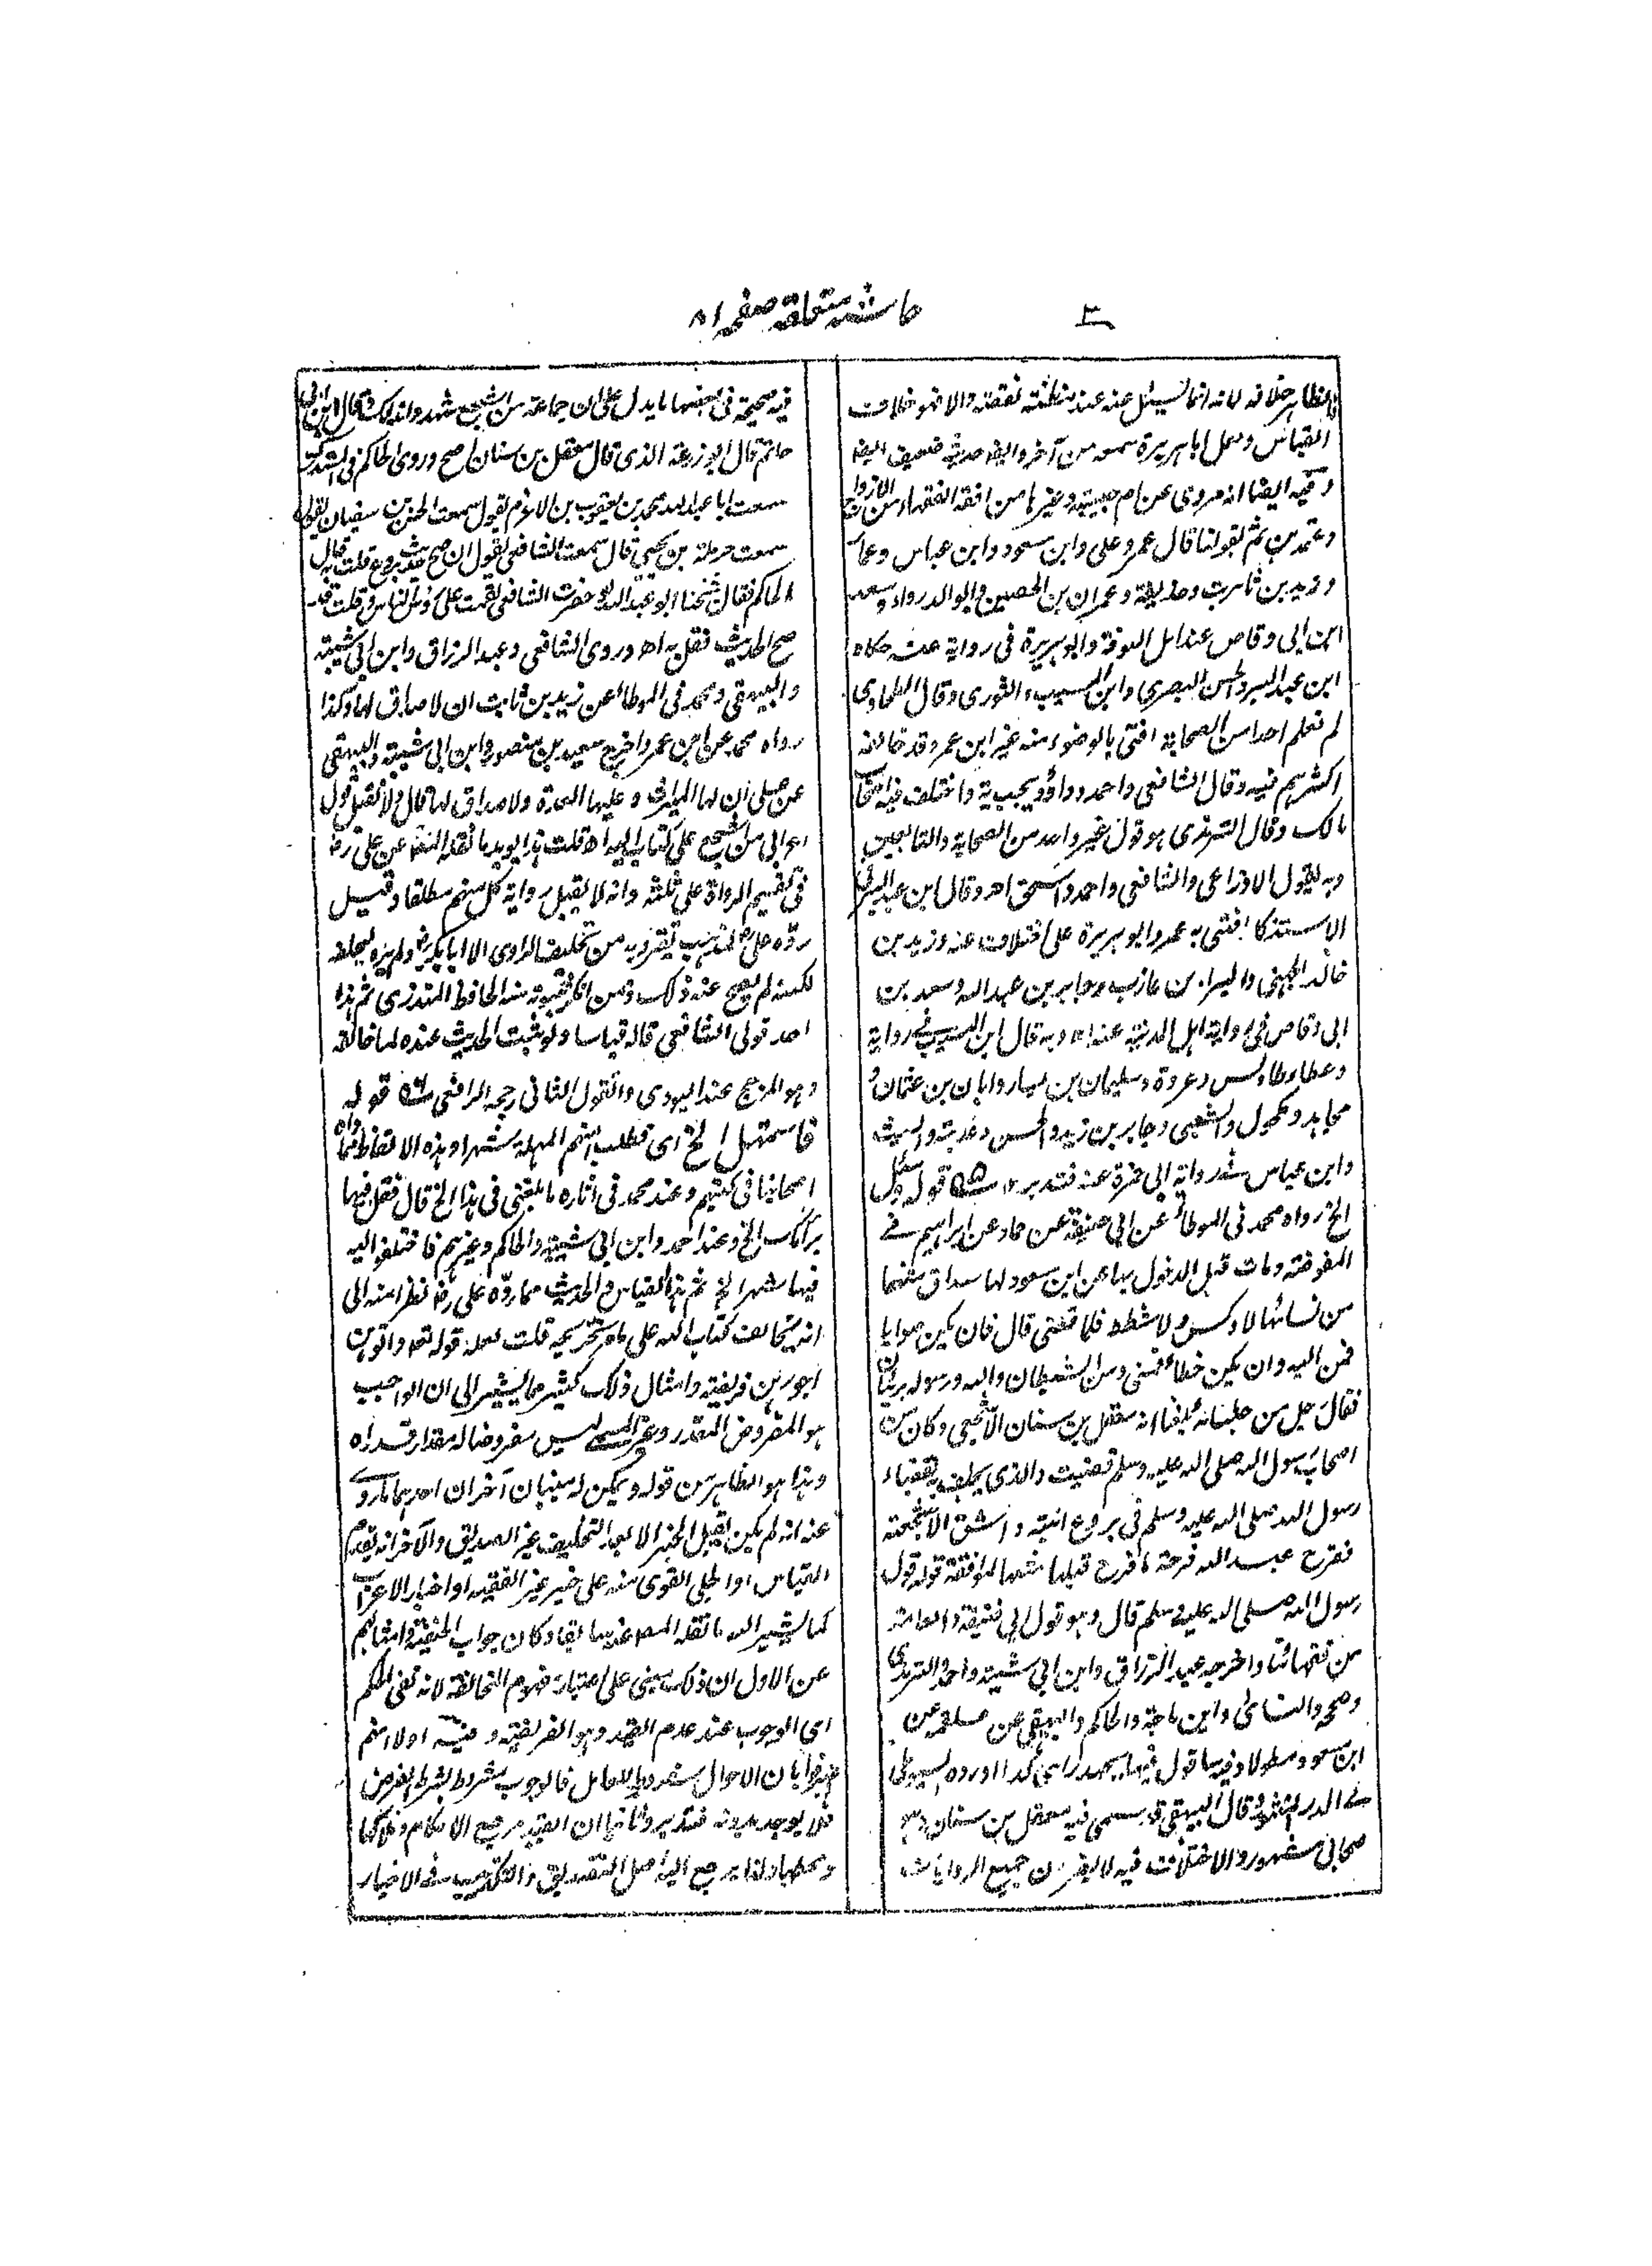 ٣
حاشیه متعلقه صفحه ٨١
والظاهر خلافه لانه انما لسيئل عنه عند مظنته نقضته والا فهو خلاف
القياس ولعل ابا هريرة سمعه من آخر وايضا حديثه ضعيف ايضا
وفيه ايضا انه مروى عن ام حبيبة وغيرها من افقه الفقهاء من الازواج
وعمدتهم ثم بقولنا قال عمر وعلى وابن مسعود وابن عباس وعمار
وزيد بن ثابت وحذيفة وعمران بن الحصين وابو الدرداء وسعد
ابن ابى وقاص عند اهل الكوفة وابو هريرة فى رواية عنه حكاه
ابن عبد البر والحسن البصرى وابن المسيب والثورى وقال الطحاوى
لم نعلم احدا من الصحابة افتى بالوضوء منه غير ابن عمر وقد خالفه
اكثرهم فيه وقال الشافعى واحمد وداؤد يجب به واختلف فيه اصحاب
مالك وقال الترمذى هو قول غير واحد من الصحابة والتابعين
وبه يقول الاوزاعى والشافعى واحمد واسحق اه وقال ابن عبد البر فى
الاستذكار افتى به عمر وابو هريرة على اختلاف عنه وزيد بن
خالد الجهنى والبراء بن عازب وجابر بن عبد الله وسعد بن
ابى وقاص فى رواية اهل المدينة عنه اه وبه قال ابن المسيب فى رواية
وعطاء وطاؤس وعروة وسليمان بن يسار وابان بن عثمان و
مجاهد ومكحول والشعبى وجابر بن زيد والحسن وعكرمة والليث
وابن عباس فى رواية ابى حمزة عنه فتدبر ١٢ ۵۵ قوله وسئل
الخ رواه محمد فى الموطأ عن ابى حنيفة عن حماد عن ابراهيم فى
المفوضة ومات قبل الدخول بها عن ابن مسعود لها صداق مثلها
من نسائها لا وكس ولا شطط فلما قضى قال فان يكن صوابا
فمن الله وان يكن خطاء فمنى ومن الشيطان والله ورسوله بريئان
فقال رجل من جلسائه بلغنا انه معقل بن سنان الاشجعى وكان من
اصحاب رسول الله صلى الله عليه وسلم قضيت والذى يحلف به بقضاء
رسول الله صلى الله عليه وسلم فى بروع ابنة واشق الاشجعية
ففرح عبد الله فرحة ما فرح قبلها مثلها لموافقة قوله قول
رسول الله صلى الله عليه وسلم قال وهو قول ابى حنيفة والعامة
من فقهائنا واخرجه عبد الرزاق وابن ابى شيبة واحمد والترمذى
وصححه والنسائى وابن ماجة والحاكم والبيهقى عن علقمة عن
ابن مسعود مطولا وفيه ساقول فيها بجهد رايى كذا اورده السيوطى
فى الدر المنثور وقال البيهقى قد سمى فيه معقل بن سنان وهو
صحابى مشهور والاختلاف فيه لا يضر لان جميع الروايات
فيه صحيحة فى بعضها ما يدل على ان جماعة من اشجع شهدوا بذلك وقال ابن ابى
حاتم قال ابو زرعة الذى قال معقل بن سنان اصح وروى الحاكم فى المستدرك
سمعت ابا عبد الله محمد بن يعقوب بن الاخرم يقول سمعت الحسن بن سفيان يقول
سمعت حرملة بن يحيى قال سمعت الشافعى يقول ان صح حديث بروع قلت به قال
الحاكم فقال شيخنا ابو عبد الله لو حضرت الشافعى لقمت على رؤس الناس وقلت قد
صح الحديث فقل به اه وروى الشافعى وعبد الرزاق وابن ابى شيبة
والبيهقى ومحمد فى الموطا عن زيد بن ثابت ان لا صداق لها وكذا
رواه محمد عن ابن عمر واخرج سعيد بن منصور وابن ابى شيبة والبيهقى
عن على ان لها الميراث وعليها العدة ولا صداق لها قال ولا نقبل قول
اعرابى من اشجع على كتاب الله اه قلت هذا يويد ما نقله المص عن على رض
فى تقسيم الرواة على ثلثة وانه لا يقبل رواية كل منهم مطلقا وقيل
رده على لمذهب تفرد به من تحليف الراوى الا ابا بكر ولم يره ليحلفه
لكنه لم يصح عنه ذلك وممن انكر ثبوته عنه الحافظ المنذرى ثم هذا
احد قولى الشافعى قاله قياسا ولو ثبت الحديث عنده لما خالفه
وهو المرجح عند النووى والقول الثانى رجحه الرافعى ۵٦ قوله
فاستمهل الخ اى فطلب منهم المهلة شهرا وهذه الالفاظ مما رواه
اصحابنا فى كتبهم وعند محمد فى آثاره ما بلغنى فى هذا الخ قال فقل فيها
برأيك الخ وعند احمد وابن ابى شيبة والحاكم وغيرهم فاختلفوا اليه
فيها شهرا الخ ثم هذا القياس والحديث مما رده على رض نظرا منه الى
انه يخالف كتاب الله على ما مر تخريجه قلت لعله قوله تعه وآتوهن
اجورهن فريضة وامثال ذلك كثير مما يشير الى ان الواجب
هو المفروض المقدر وغير المسمى ليس مفروضا له مقدار قدراه
وهذا هو الظاهر من قوله ويمكن له مبنيان آخران احدهما ما روى
عنه انه لم يكن يقبل الخبر الا بعد التحليف غير الصديق والآخر انه يقدم
القياس او الجلى القوى منه على خبر غير الفقيه او اخبار الاعراب
كما يشير اليه ما نقله المص عنه سابقا وكان جواب الحنفية وامثالهم
عن الاول ان ذلك مبنى على اعتبار مفهوم المخالفة لانه نفى الحكم
اى الوجوب عند عدم القيد وهو الفريضة وفيه اولا انهم
صرحوا بان الاحوال شروط للعامل فالوجوب مشروط بشرط الفرض
فلا يوجد بدونه فتدبر وثانيا ان القيد مرجع الاحكام ومحكمها
ومحطها ولذا يرجع اليه اصل التصديق والتكذيب فى الاخبار